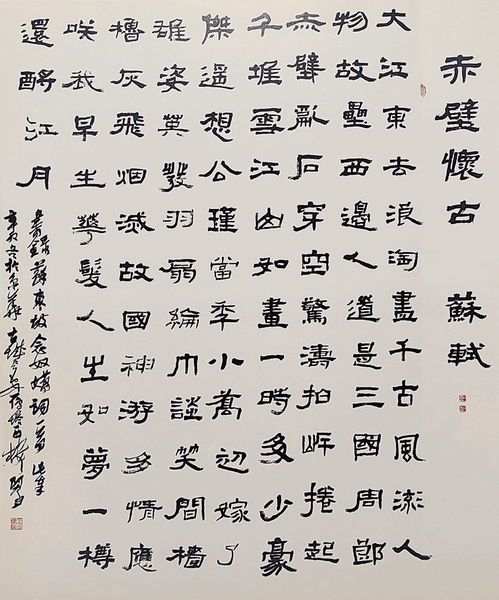 赤壁懷古 蘇軾
大江東去浪淘盡千古風流人
物故壘西邊人道是三國周郎
赤壁亂石穿空驚濤拍岸捲起
千堆雪江山如畫一時多少豪
傑遥想公瑾當年小喬初嫁了
雄姿英發羽扇綸巾談笑間檣
櫓灰飛烟滅故國神游多情應
咲我早生華髮人生如夢一樽
還酹江月
書錄蘇東坡念奴嬌詞一首
辛卯冬於